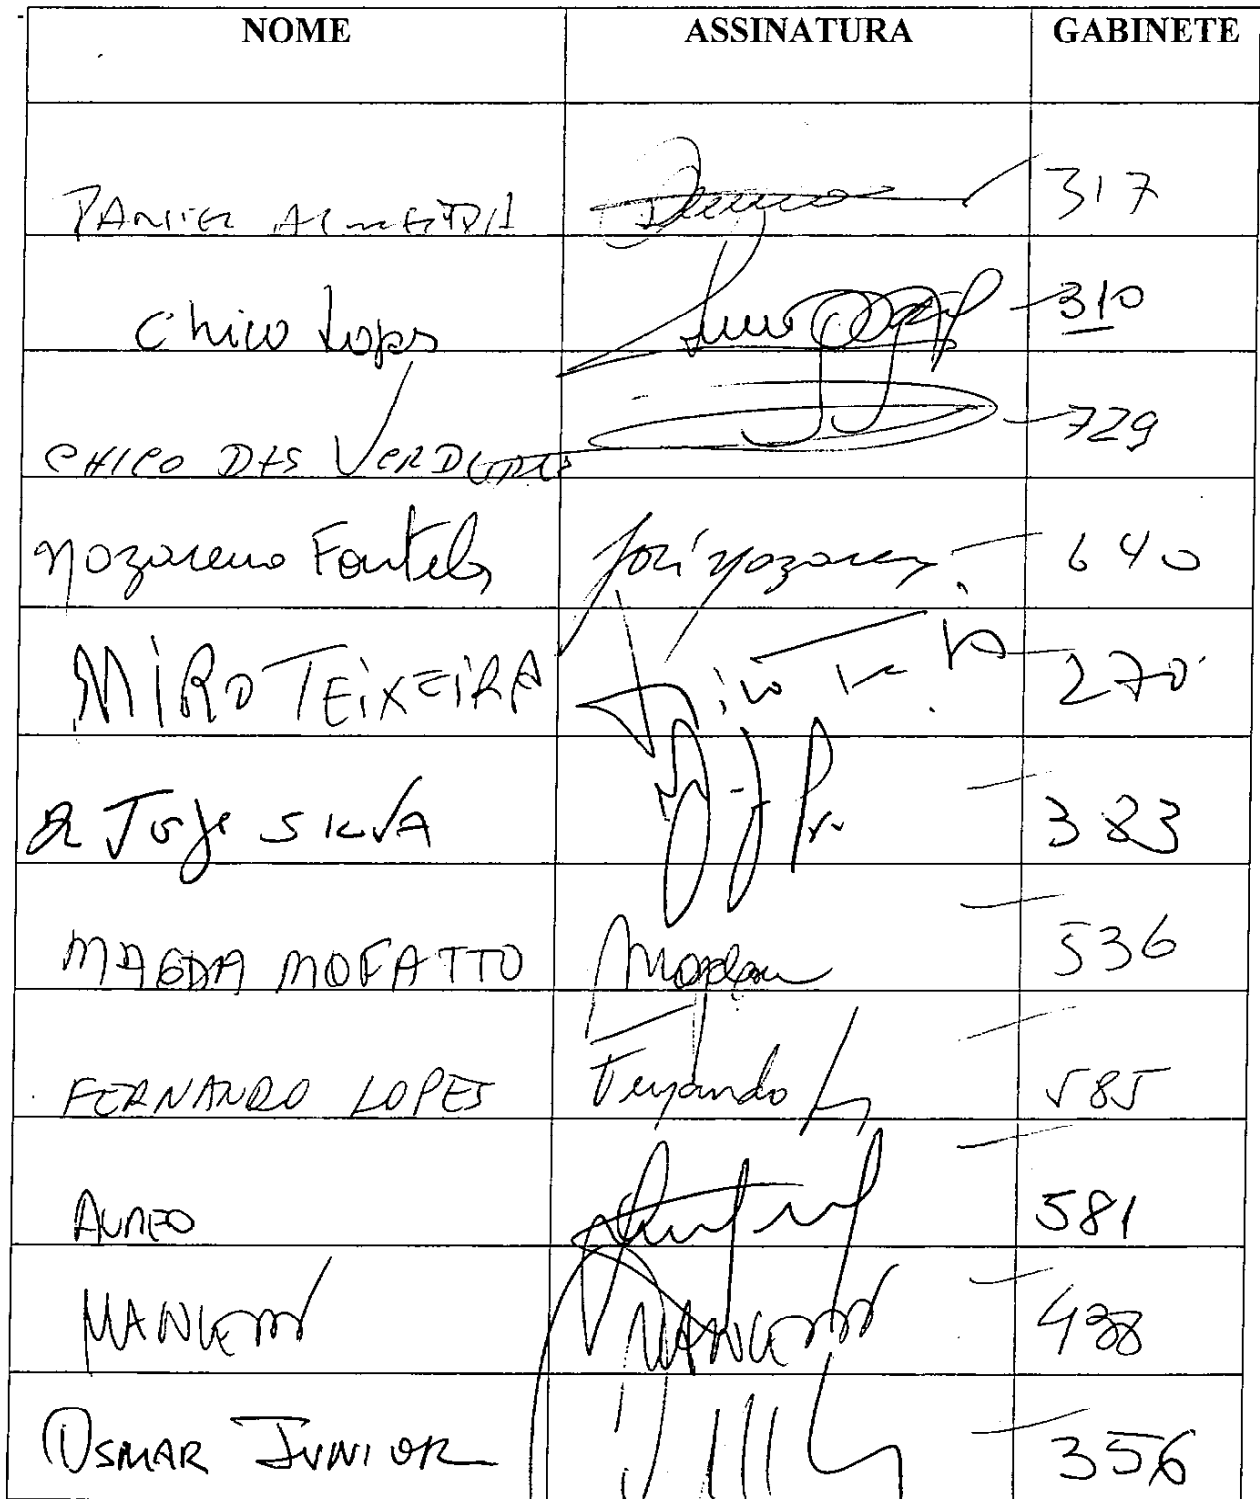 NOME ASSINATURA GABINETE
DANIEL ALMEIDA 317
Chico Lopes 310
CHICO DAS VERDURAS 729
Nazareno Fonteles José Nazareno 640
MIRO TEIXEIRA Miro Teixeira 270
Dr Jorge SILVA 383
MAGDA MOFATTO Magda 536
FERNANDO LOPES Fernando 585
AUREO 581
MANGONI 438
OSMAR JUNIOR 356